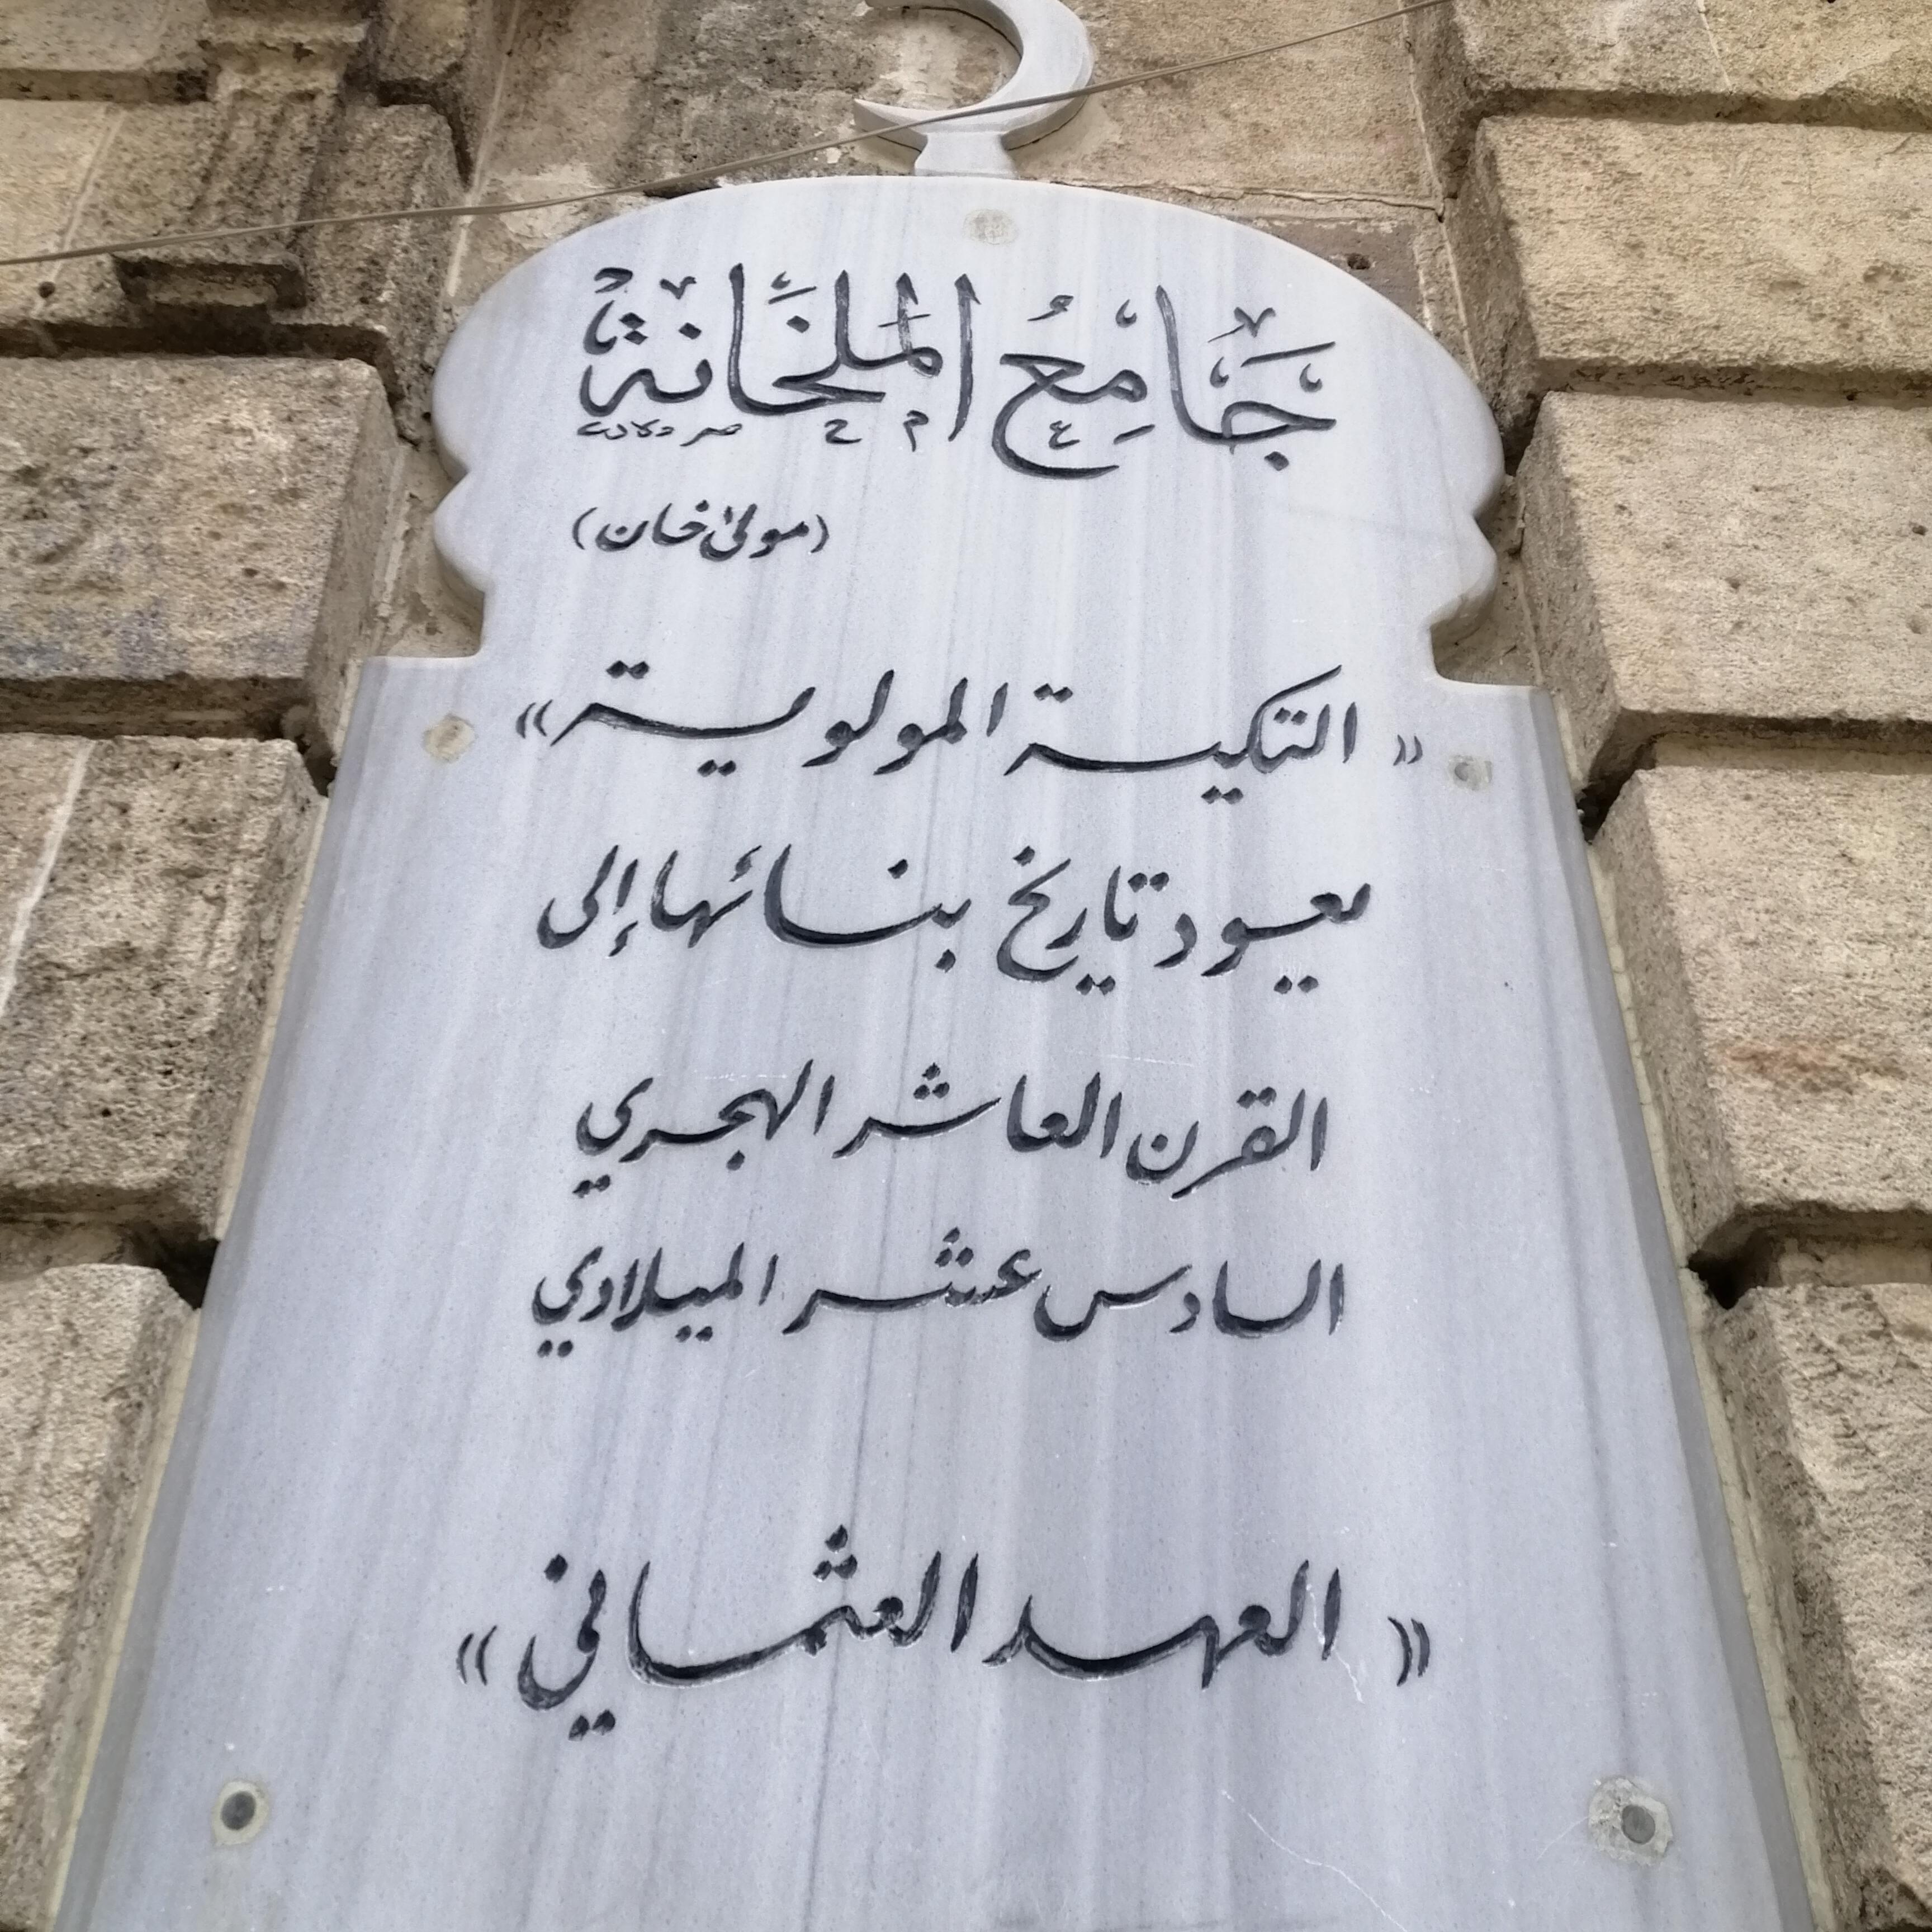 جَامِعُ المَلخَانَة
(مولىٰ خان)
«التكية المولوية»
يعود تاريخ بنائها إلى
القرن العاشر الهجري
السادس عشر الميلادي
«العهد العثماني»